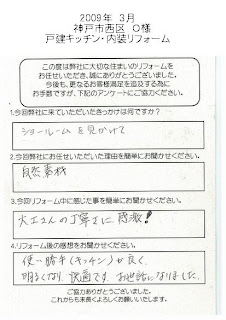 2009年 3月
神戸市西区 O様
戸建キッチン・内装リフォーム
この度は弊社に大切な住まいのリフォームを
お任せいただき、誠にありがとうございました。
今後も、更なるお客様満足を追及する為に
お手数ですが、下記のアンケートにご協力ください。
1.今回弊社に来ていただいたきっかけは何ですか?
ショールームを見かけて
2.今回弊社にお任せいただいた理由を簡単にお聞かせください。
自然素材
3.今回リフォーム中に感じた事を簡単にお聞かせください。
大工さんの丁寧さに感激!
4.リフォーム後の感想をお聞かせください。
使い勝手(キッチン)が良く、
明るくなり、快適です。お世話になりました。
ご協力ありがとうございました。
これからも末長くよろしくお願いいたします。